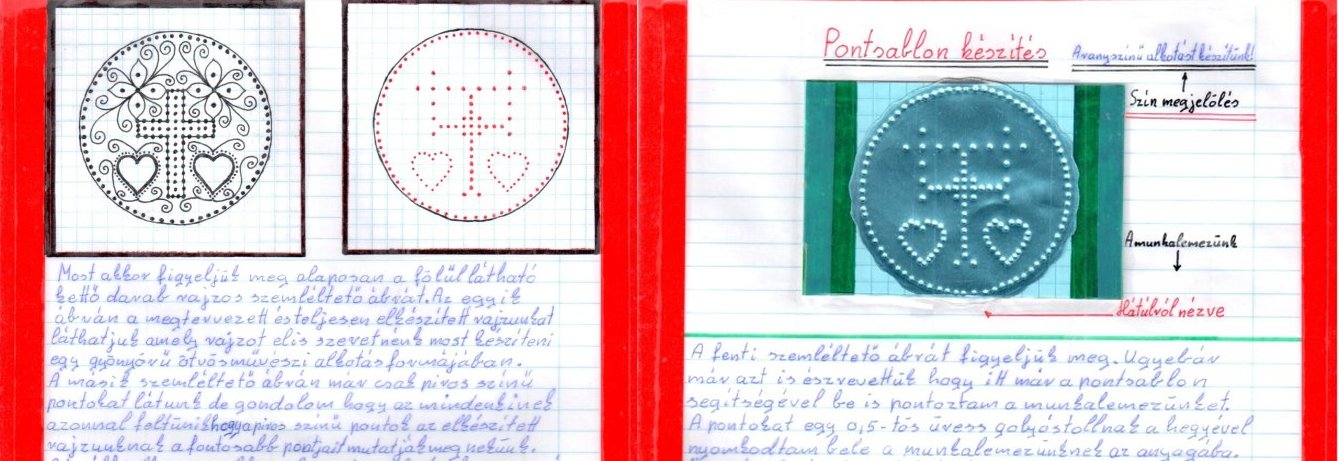 Most akkor figyeljük meg alaposan a fölül látható
kettő darab rajzos szemléltető ábrát. Az egyik
ábrán a megtervezett és teljesen elkészített rajzunkat
láthatjuk amely rajzot el is szeretnénk most készíteni
egy gyönyörű ötvösművészi alkotás formájában.
A másik szemléltető ábrán már csak piros színű
pontokat látunk de gondolom hogy az mindenkinek
azonnal feltűnik hogy a piros színű pontok az elkészített
rajzunknak a fontosabb pontjait mutatják meg nekünk.
Pontsablon készítés
Aranyszínű alkotást készítünk!
Szín megjelölés
A munkalemezünk
Hátulról nézve
A fenti szemléltető ábrát figyeljük meg. Ugyebár
már azt is észrevettük hogy itt már a pontsablon
segítségével be is pontoztam a munkalemezünket.
A pontokat egy 0,5-tös üress golyóstollnak a hegyével
nyomkodtam bele a munkalemezünknek az anyagába.